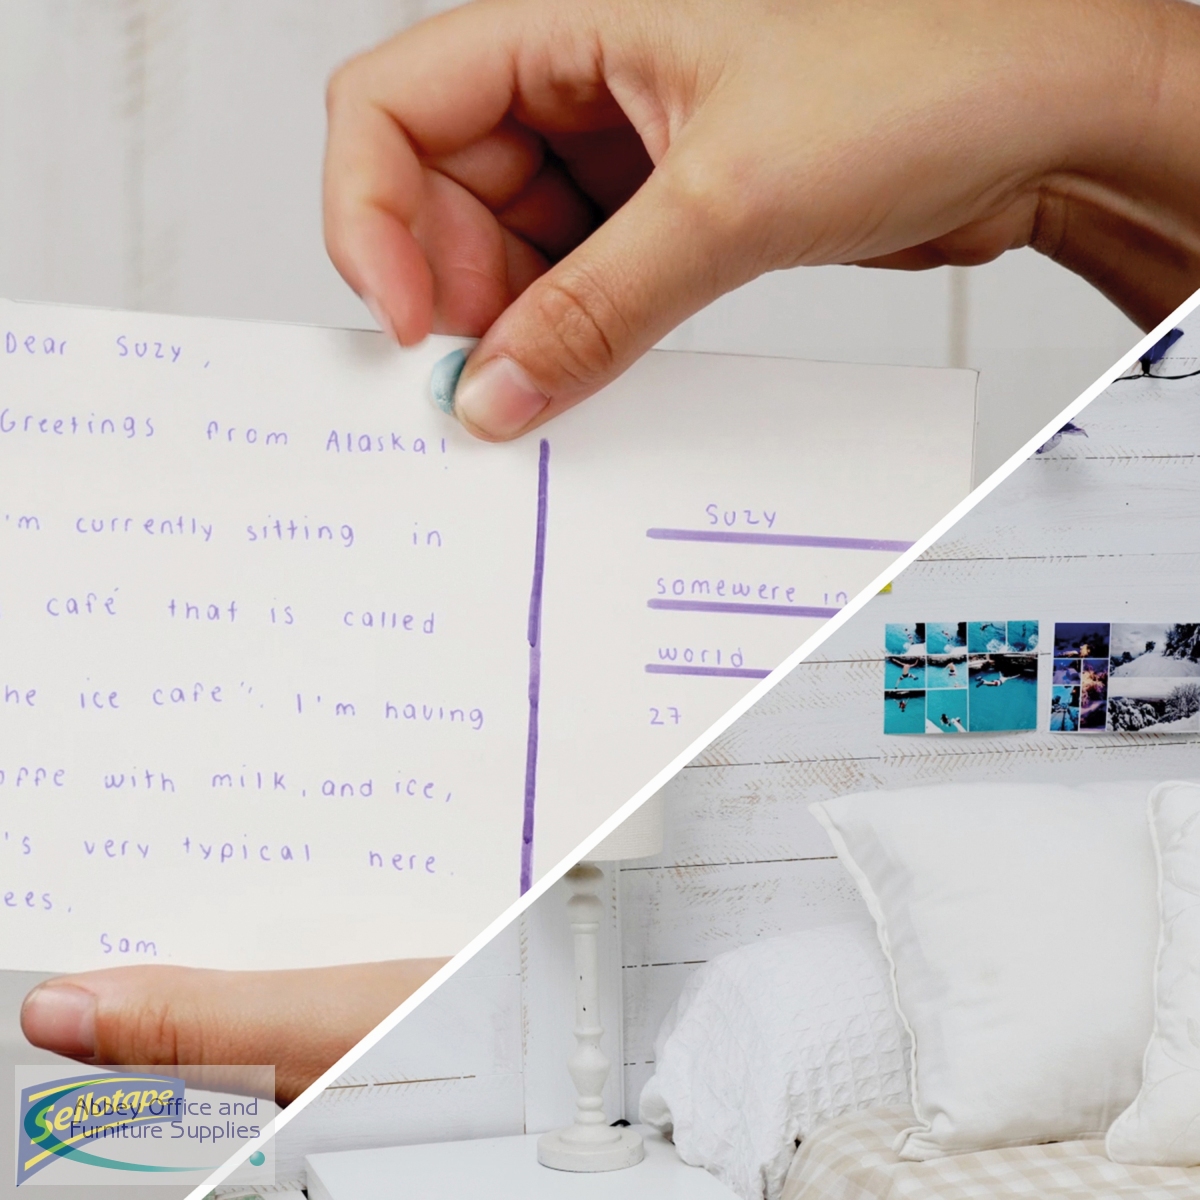 Dear Suzy,
Greetings from Alaska!
'm currently sitting in
café that is called
he ice cafe". I'm having
offe with milk, and ice,
's very typical here.
ees,
Sam.
Suzy
somewere in
world
27
Sellotape
Abbey Office and
Furniture Supplies